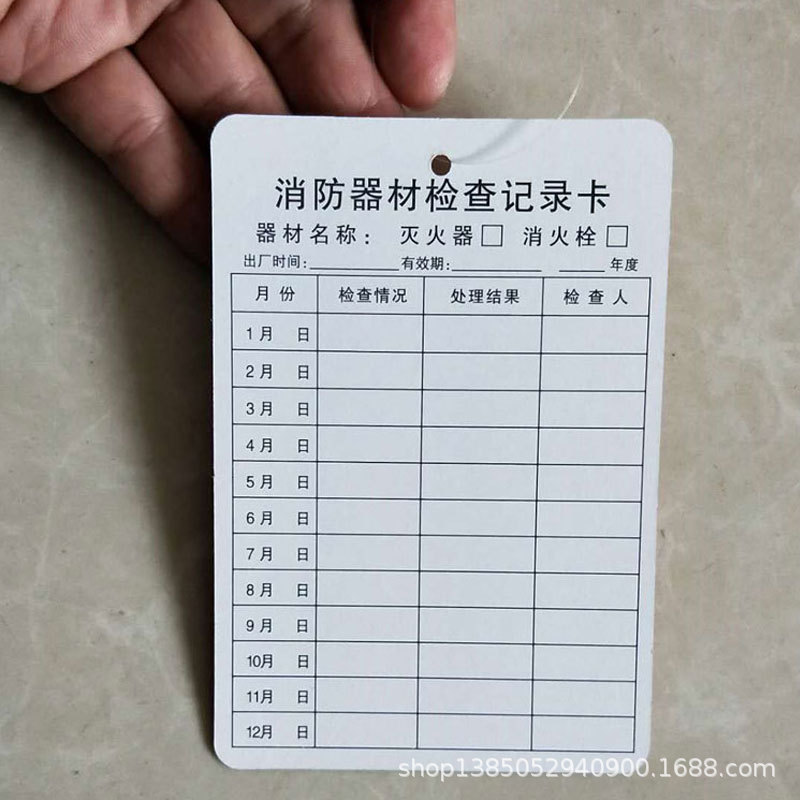 消防器材检查记录卡
器材名称： 灭火器□ 消火栓□
出厂时间：________有效期：________ ____年度
月 份 检查情况 处理结果 检 查 人
1月 日
2月 日
3月 日
4月 日
5月 日
6月 日
7月 日
8月 日
9月 日
10月 日
11月 日
12月 日
shop1385052940900.1688.com